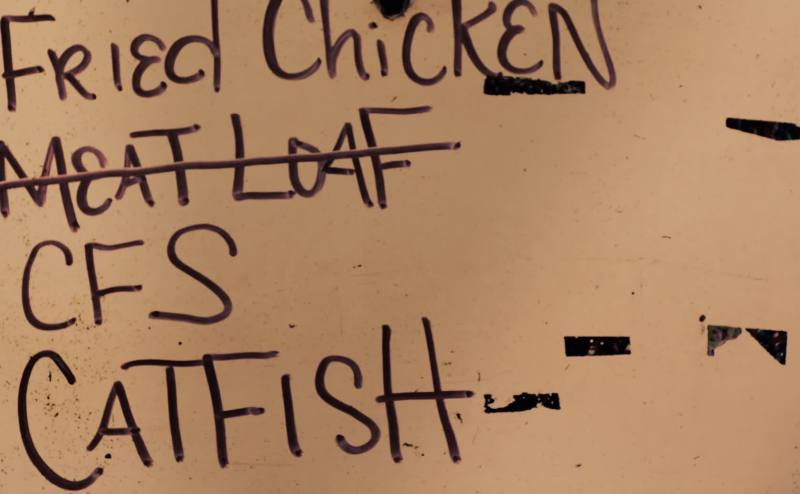 FRiEd ChiCKEN
MEAT LOAF
CFS
CATFISH